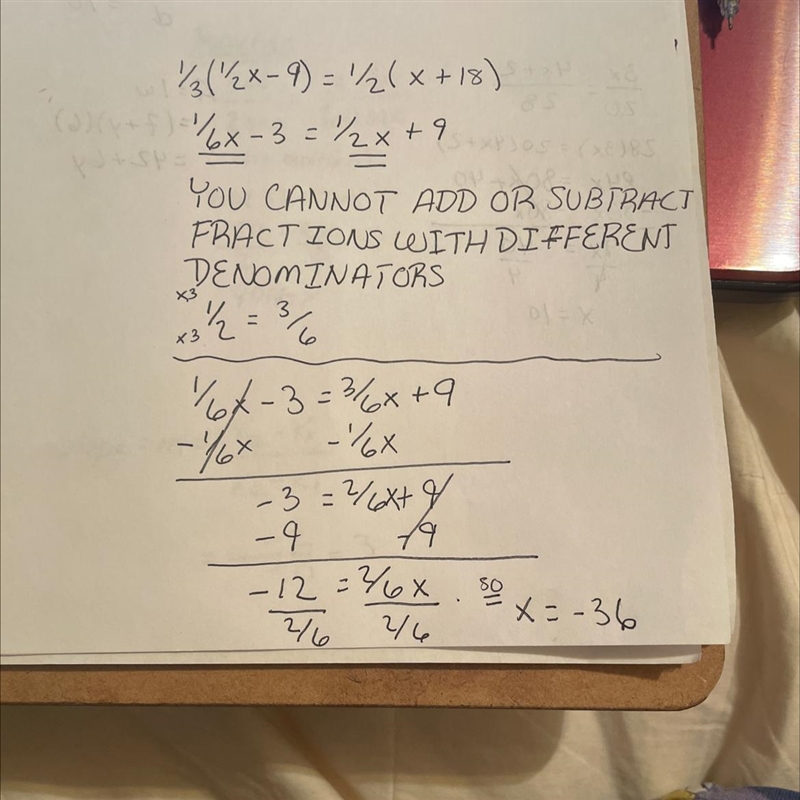 1/3(1/2x - 9) = 1/2(x + 18)
1/6x - 3 = 1/2x + 9
YOU CANNOT ADD OR SUBTRACT
FRACTIONS WITH DIFFERENT
DENOMINATORS
x3
x3 1/2 = 3/6
1/6x - 3 = 3/6x + 9
- 1/6x - 1/6x
-3 = 2/6x + 9
-9 -9
-12 = 2/6x . so x = -36
2/6 2/6